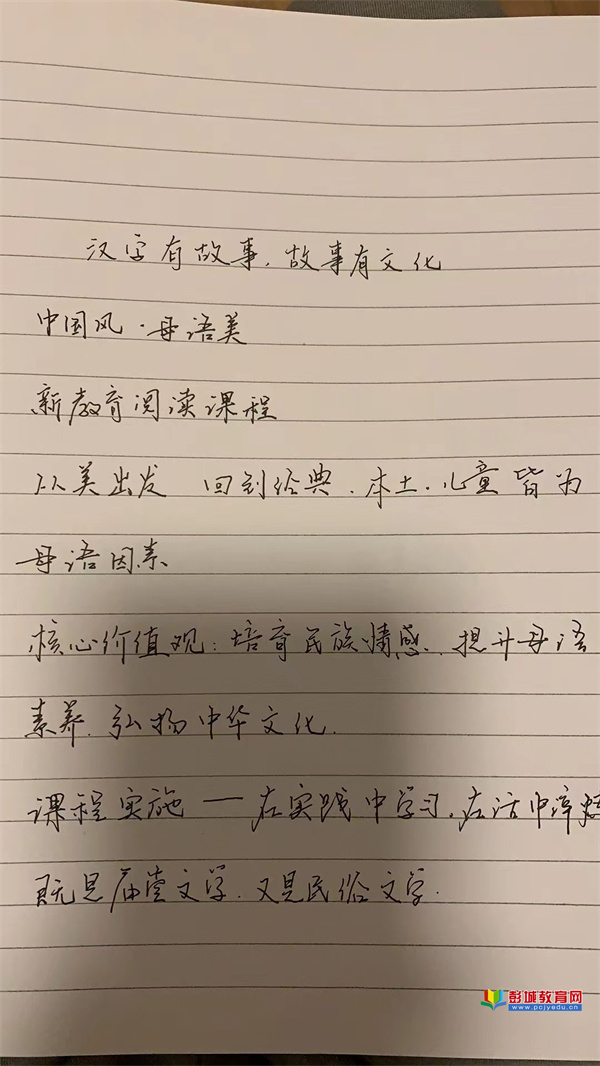 汉字有故事.故事有文化
中国风·母语美
新教育阅读课程
从美出发 回到经典.本土.儿童皆为
母语因素
核心价值观:培育民族情感.提升母语
素养.弘扬中华文化.
课程实施——在实践中学习,在活中淬
既是庙堂文学.又是民俗文学.
彭城教育网
www.pcjyedu.cn